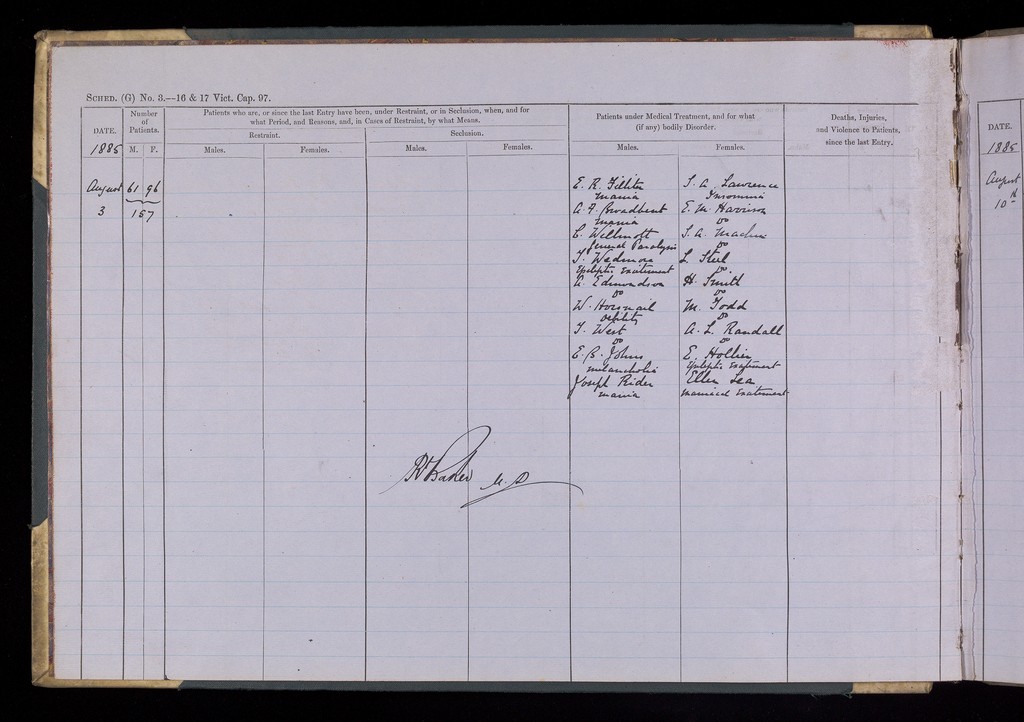 SCHED. (G) No. 3.—16 & 17 Vict. Cap. 97.
DATE.
Number of Patients.
Patients who are, or since the last Entry have been, under Restraint, or in Seclusion, when, and for
what Period, and Reasons, and, in Cases of Restraint, by what Means.
Patients under Medical Treatment, and for what
(if any) bodily Disorder.
Deaths, Injuries,
and Violence to Patients,
since the last Entry.
Restraint. Seclusion.
1885 M. F. Males. Females. Males. Females. Males. Females.
August 61 96
3 157
E. R. S. A. Lawrence
mania Insomnia
A. F. Broadbent E. M. Harrison
mania Do
C. Wellmott S. A. Machin
General Paralysis Do
T. Wedmore L. Steel
Epileptic Excitement Do.
A. Edmondson H. Smith
Do Do
W. Horsnail M. Todd
Debility Do
T. West A. L. Randall
Do Do
E. B. Johns E. Hollier
melancholia Epileptic Excitement
Joseph Rider Ellen Lea
mania maniacal Excitement
Rt Baker M. D
DATE.
1885
August
10th